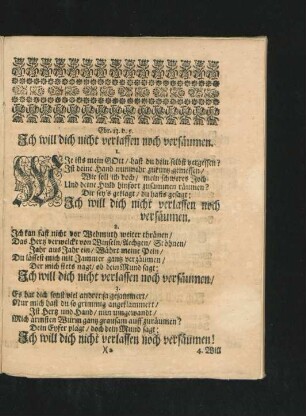 Ebr. 13. v. 5.
Ich will dich nicht verlassen noch versäumen.
1.
WIe ists mein GOtt / hast du dein selbst vergessen?
Ist deine Hand nunmehr zu kurtz gemessen /
Wie soll ich doch / mein schweres Joch
Und dem Hertz hinfort zusammen räumen?
Dir sey's geklagt / du hasts gesagt:
Ich will dich nicht verlassen noch
versäumen.
2.
Ich kan fast nicht vor Wehmuth weiter thränen /
Das Hertz verweicht von Winseln / Aechzen / Stöhnen /
Jahr aus Jahr ein / Währt meine Pein /
Du lässest mich mit Jammer gantz verzäumen /
Der mich stets nagt / ob dein Mund sagt:
Ich will dich nicht verlassen noch versäumen /
3.
Es hat dich sonst viel anders gejammert /
Nur mich hast du so grimmig angeklammert /
Ist Hertz und Hand / nun umgewandt /
Mich ärmsten Wurm gantz grausam auffzuräumen?
Dein Eyfer plagt / doch dein Mund sagt:
Ich will dich nicht verlassen noch versäumen!
4. Will